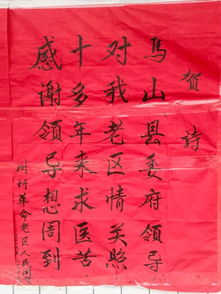 贺诗
马山县委府领导
对我老区情关照
十多年来求医苦
感谢领导想周到
革命老区人民